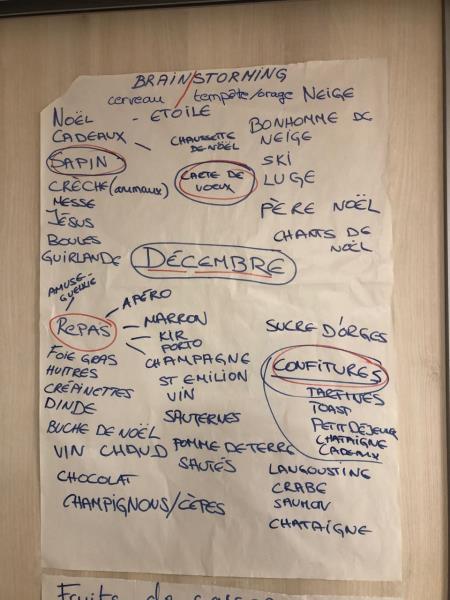 BRAIN/STORMING
cerveau tempête/orage NEIGE
NOËL - ETOILE
CADEAUX
CHAUSSETTE
DE NOËL
BONHOMME DE
NEIGE
SAPIN
SKI
CRÈCHE (animaux)
CARTE DE
VOEUX
LUGE
MESSE
JÉSUS
PÈRE NOËL
BOULES
CHANTS DE
NOËL
GUIRLANDE
DÉCEMBRE
AMUSE-
GUEULE
APÉRO
REPAS
MARRON
KIR
PORTO
CHAMPAGNE
SUCRE D'ORGES
FOIE GRAS
HUITRES
CRÉPINETTES
DINDE
ST EMILION
VIN
SAUTERNES
CONFITURES
TARTINES
TOAST
PETIT DÉJEUNER
CHATAIGNE
CADEAUX
BUCHE DE NOËL
VIN CHAUD
POMME DE TERRE
SAUTÉS
LANGOUSTINE
CHOCOLAT
CRABE
CHAMPIGNONS/CÈPES
SAUMON
CHATAIGNE
Fruits de